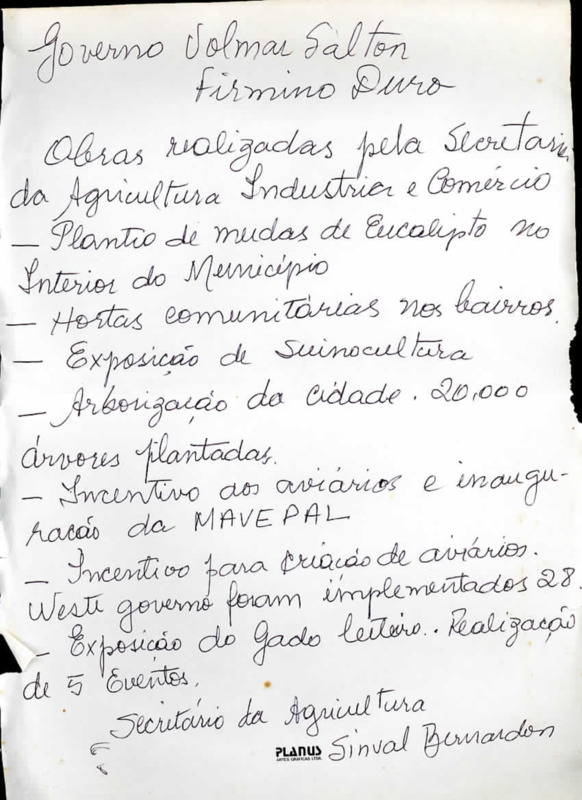 Governo Volmar Salton
Firmino Duro
Obras realizadas pela Secretaria
da Agricultura Industria e Comércio
— Plantio de mudas de Eucalipto no
Interior do Município
— Hortas comunitárias nos bairros.
— Exposição de Suinocultura
— Arborização da cidade. 20.000
árvores plantadas.
— Incentivo aos aviários e inaugu-
ração da MAVEPAL
— Incentivo para criação de aviários.
Neste governo foram implementados 28.
— Exposição do Gado leiteiro.. Realização
de 5 Eventos.
Secretário da Agricultura
PLANUS Sinval Bernardon
ARTES GRÁFICAS LTDA.